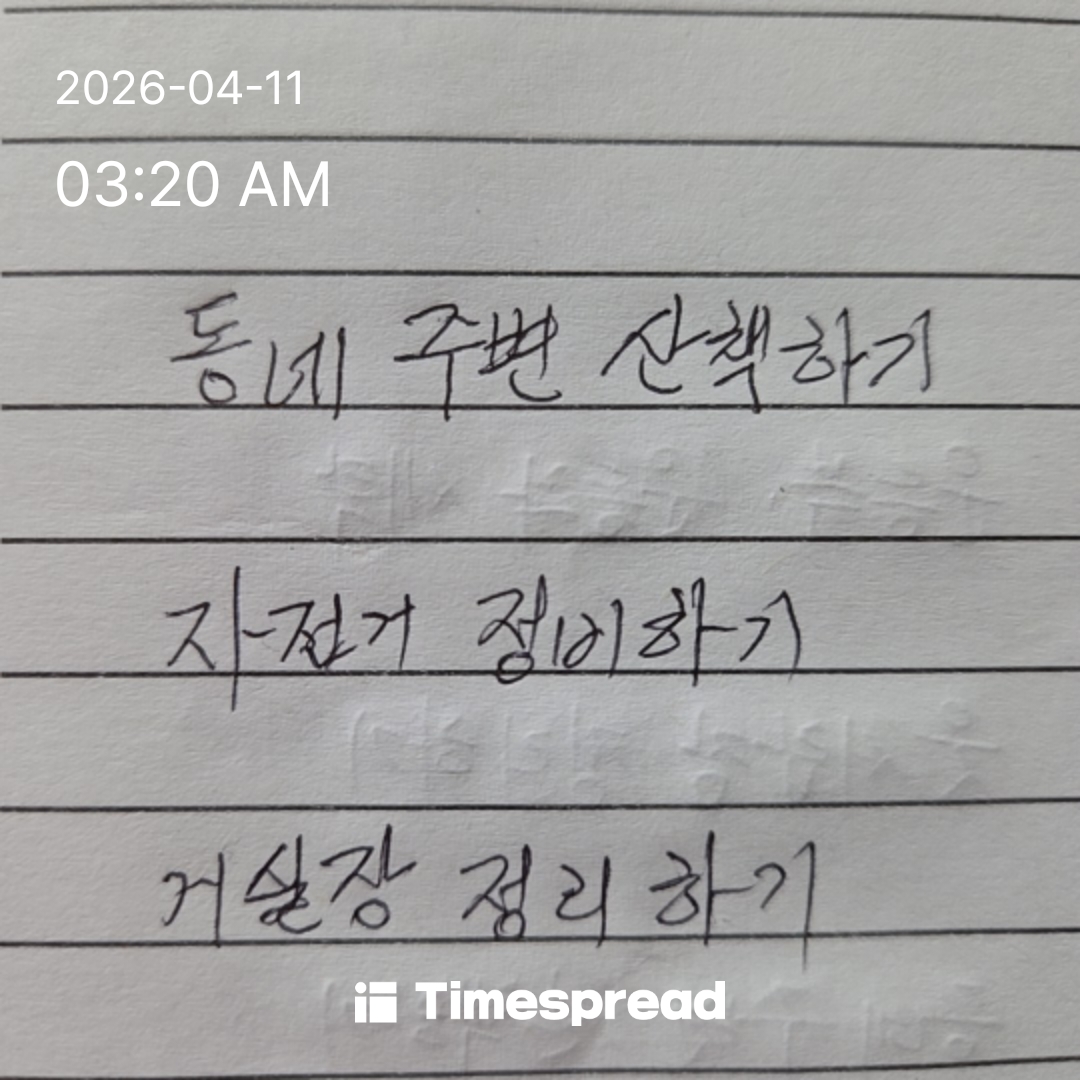 2026-04-11
03:20 AM
동네 주변 산책하기
자전거 정비하기
거실장 정리하기
Timespread